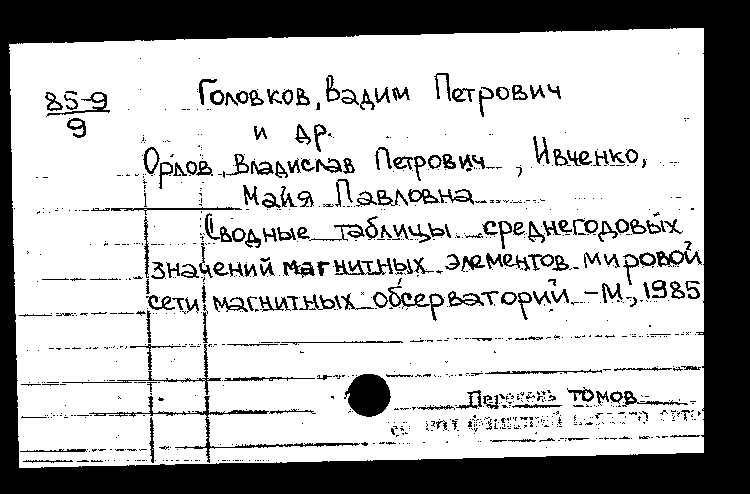 85-9
9
Головков, Вадим Петрович
и др.
Орлов, Владислав Петрович, Ивченко,
Майя Павловна
Сводные таблицы среднегодовых
значений магнитных элементов мировой
сети магнитных обсерваторий. - М., 1985
томов